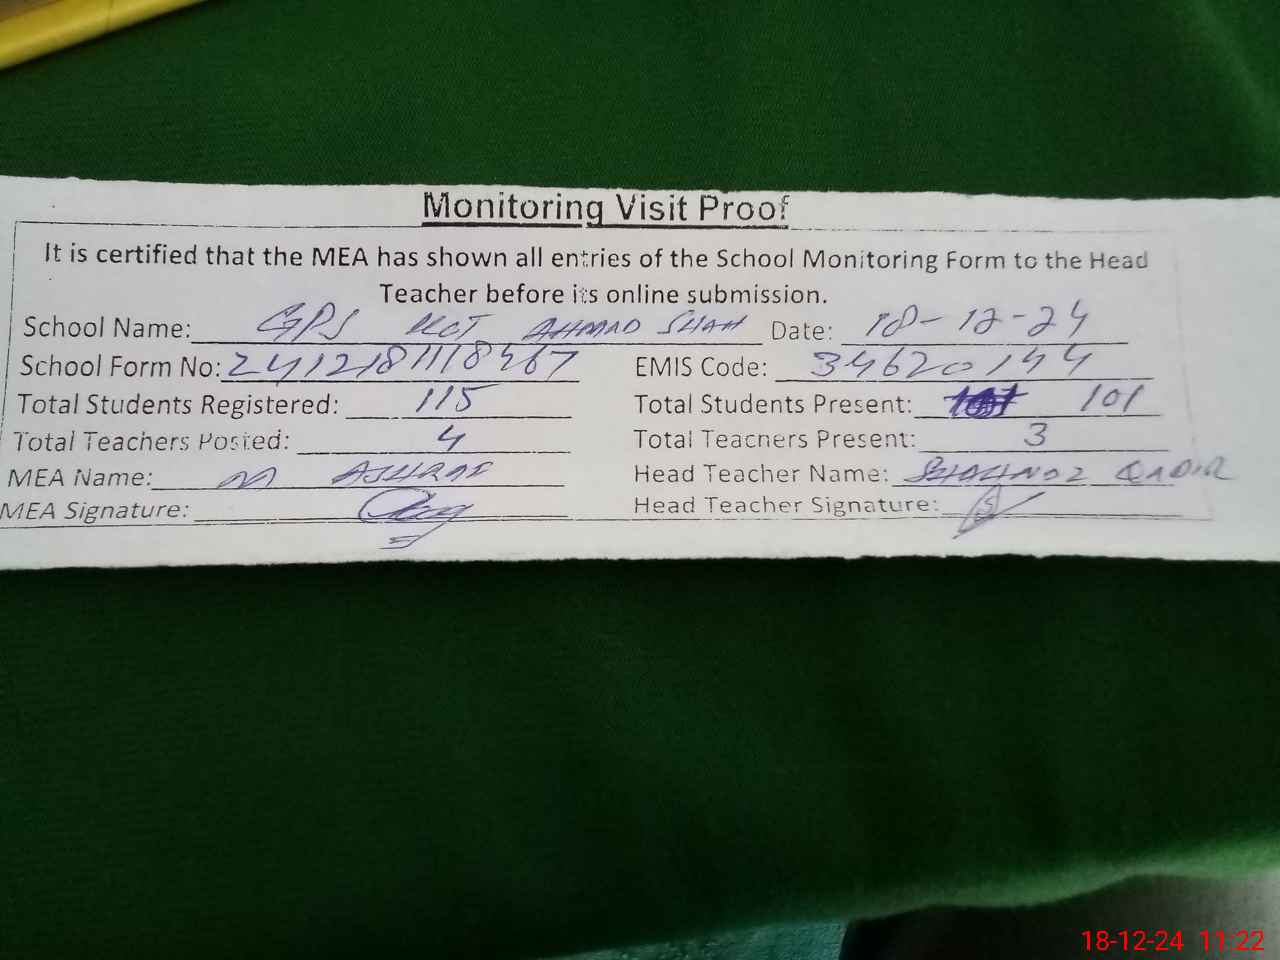 Monitoring Visit Proof
It is certified that the MEA has shown all entries of the School Monitoring Form to the Head
Teacher before its online submission.
School Name: GPS KOT AHMAD SHAH Date: 18-12-24
School Form No: EMIS Code: 34620144
Total Students Registered: 115 Total Students Present: 101
Total Teachers Posted: 4 Total Teachers Present: 3
MEA Name: M ASHRAF Head Teacher Name: SHAHNAZ QADIR
MEA Signature: Head Teacher Signature:
18-12-24 11:22